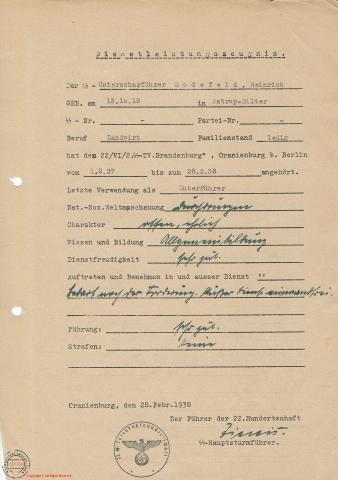 Dienstleistungszeugnis.
Der SS - Unterscharführer Hodefeld, Heinrich
GEB. am 13.10.19 in Natrup-Hilter
SS - Nr. - Partei-Nr. -
Beruf Landwirt Familienstand ledig
hat dem 22/VI/2.SS-TV.Brandenburg", Oranienburg b. Berlin
vom 1.2.37 bis zum 28.2.38 angehört.
Letzte Verwendung als Unterführer
Nat.-Soz.Weltanschauung durchdrungen
Charakter offen, ehrlich
Wissen und Bildung Allgemeinbildung
Dienstfreudigkeit sehr gut.
Auftreten und Benehmen in und ausser Dienst "
bedarf noch der Förderung. Außer Dienst einwandfrei.
Führung: sehr gut.
Strafen: keine
Oranienburg, den 28.Febr.1938
Der Führer der 22.Hundertschaft
SS-Hauptsturmführer.